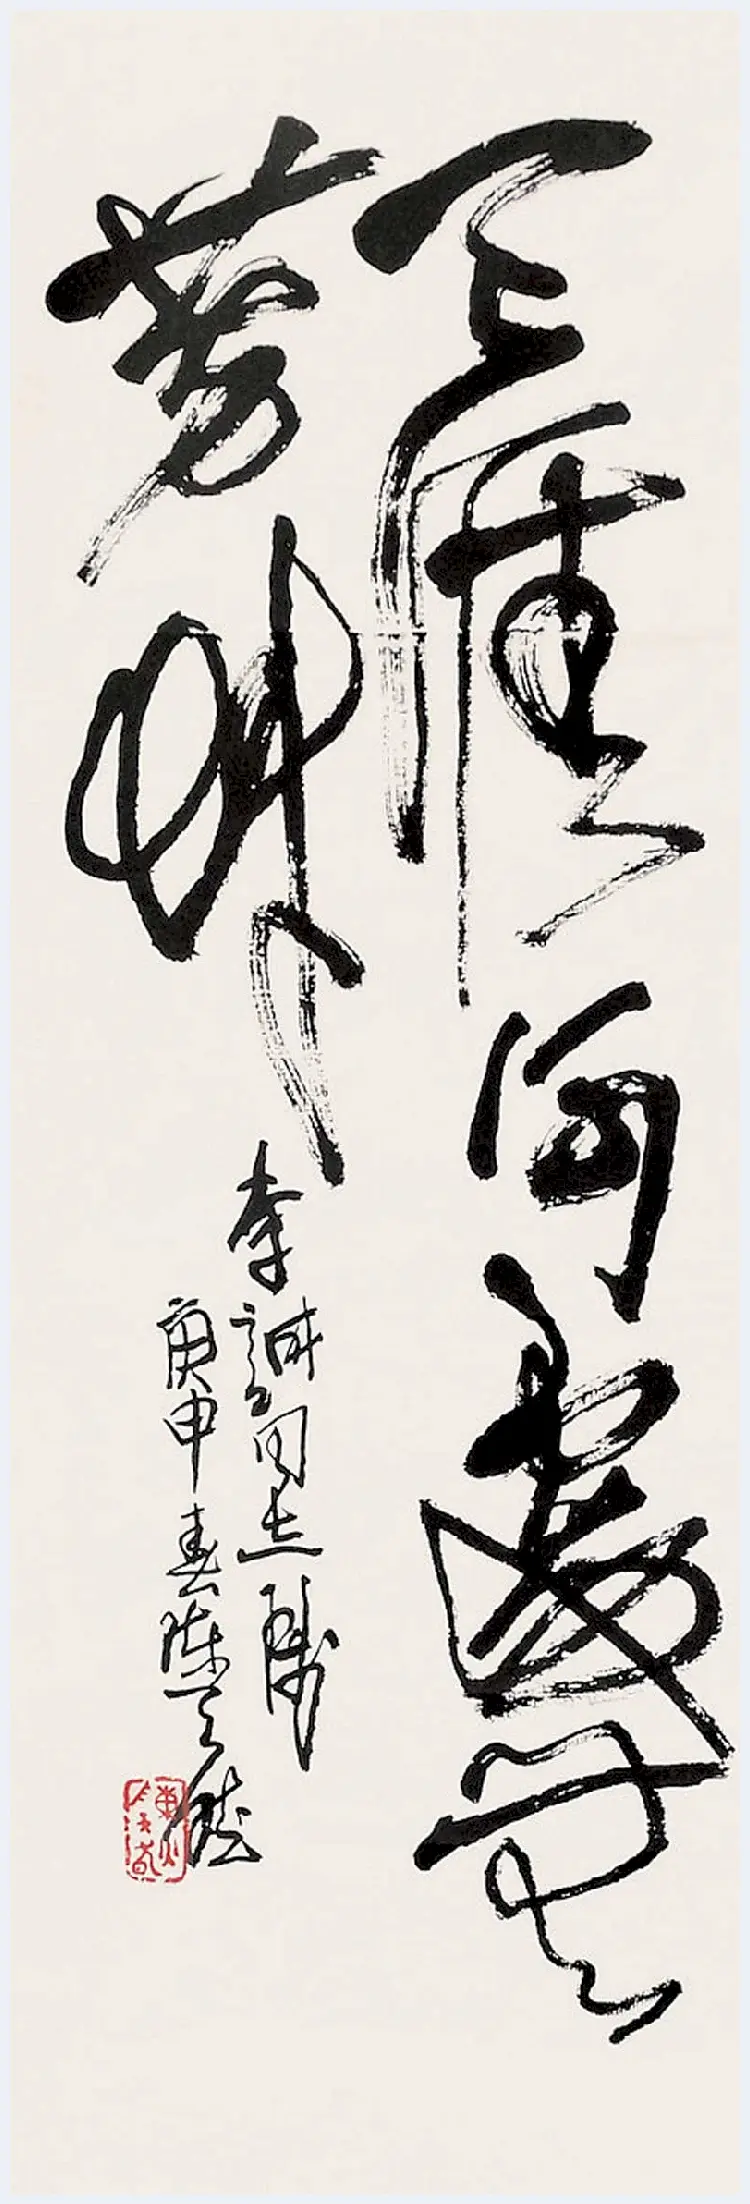 天涯何處無
芳艸
李誠同志屬
庚申春陳天然